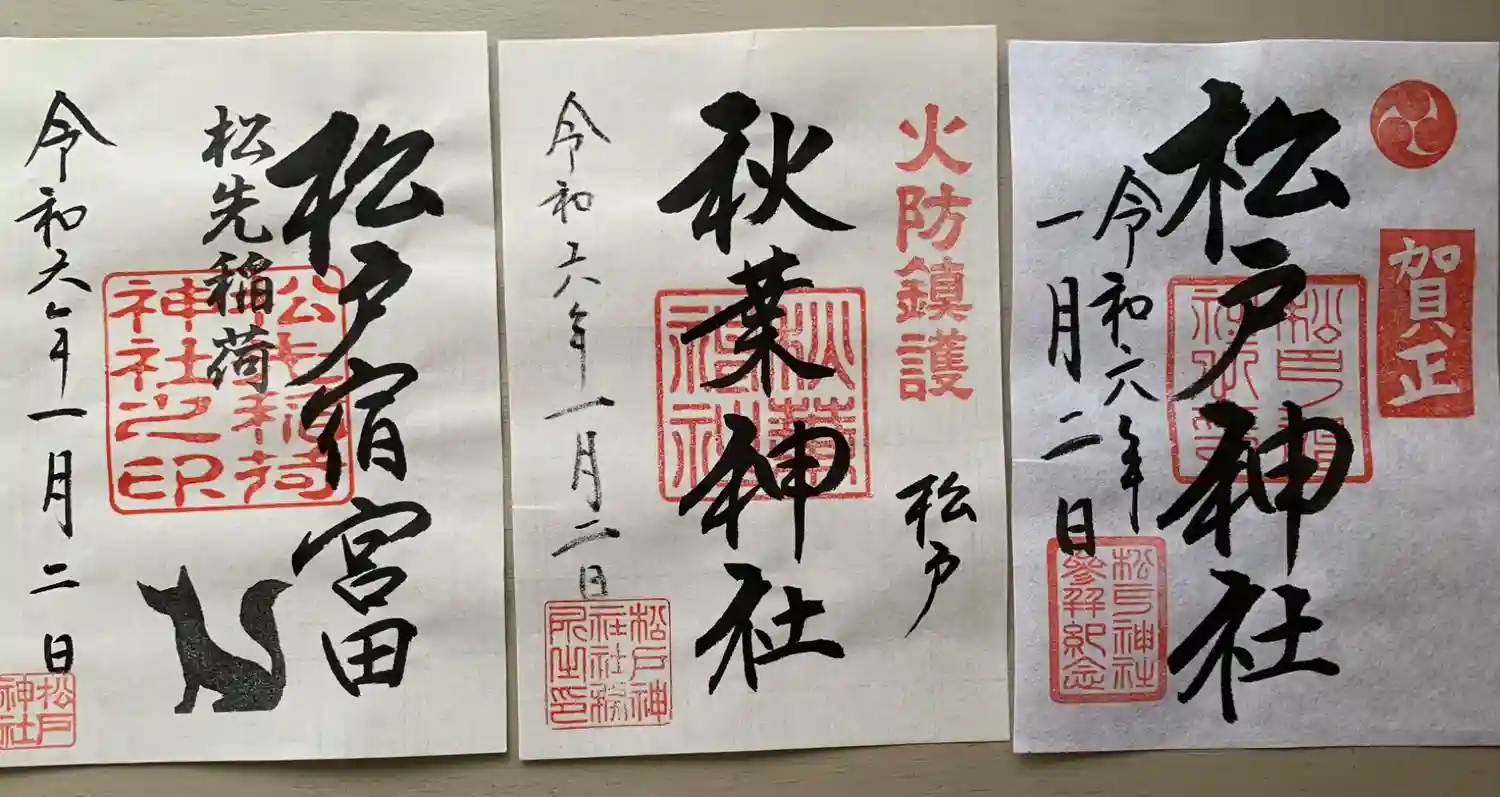 賀正
松戸神社
令和六年
一月二日
松戸神社
參拜紀念
火防鎮護
松戸
秋葉神社
秋葉
神社
令和六年一月二日
松戸神
社社務
所之印
松戸宿宮田
松先稲荷
松先稲荷
神社之印
令和六年一月二日
松戸
神社